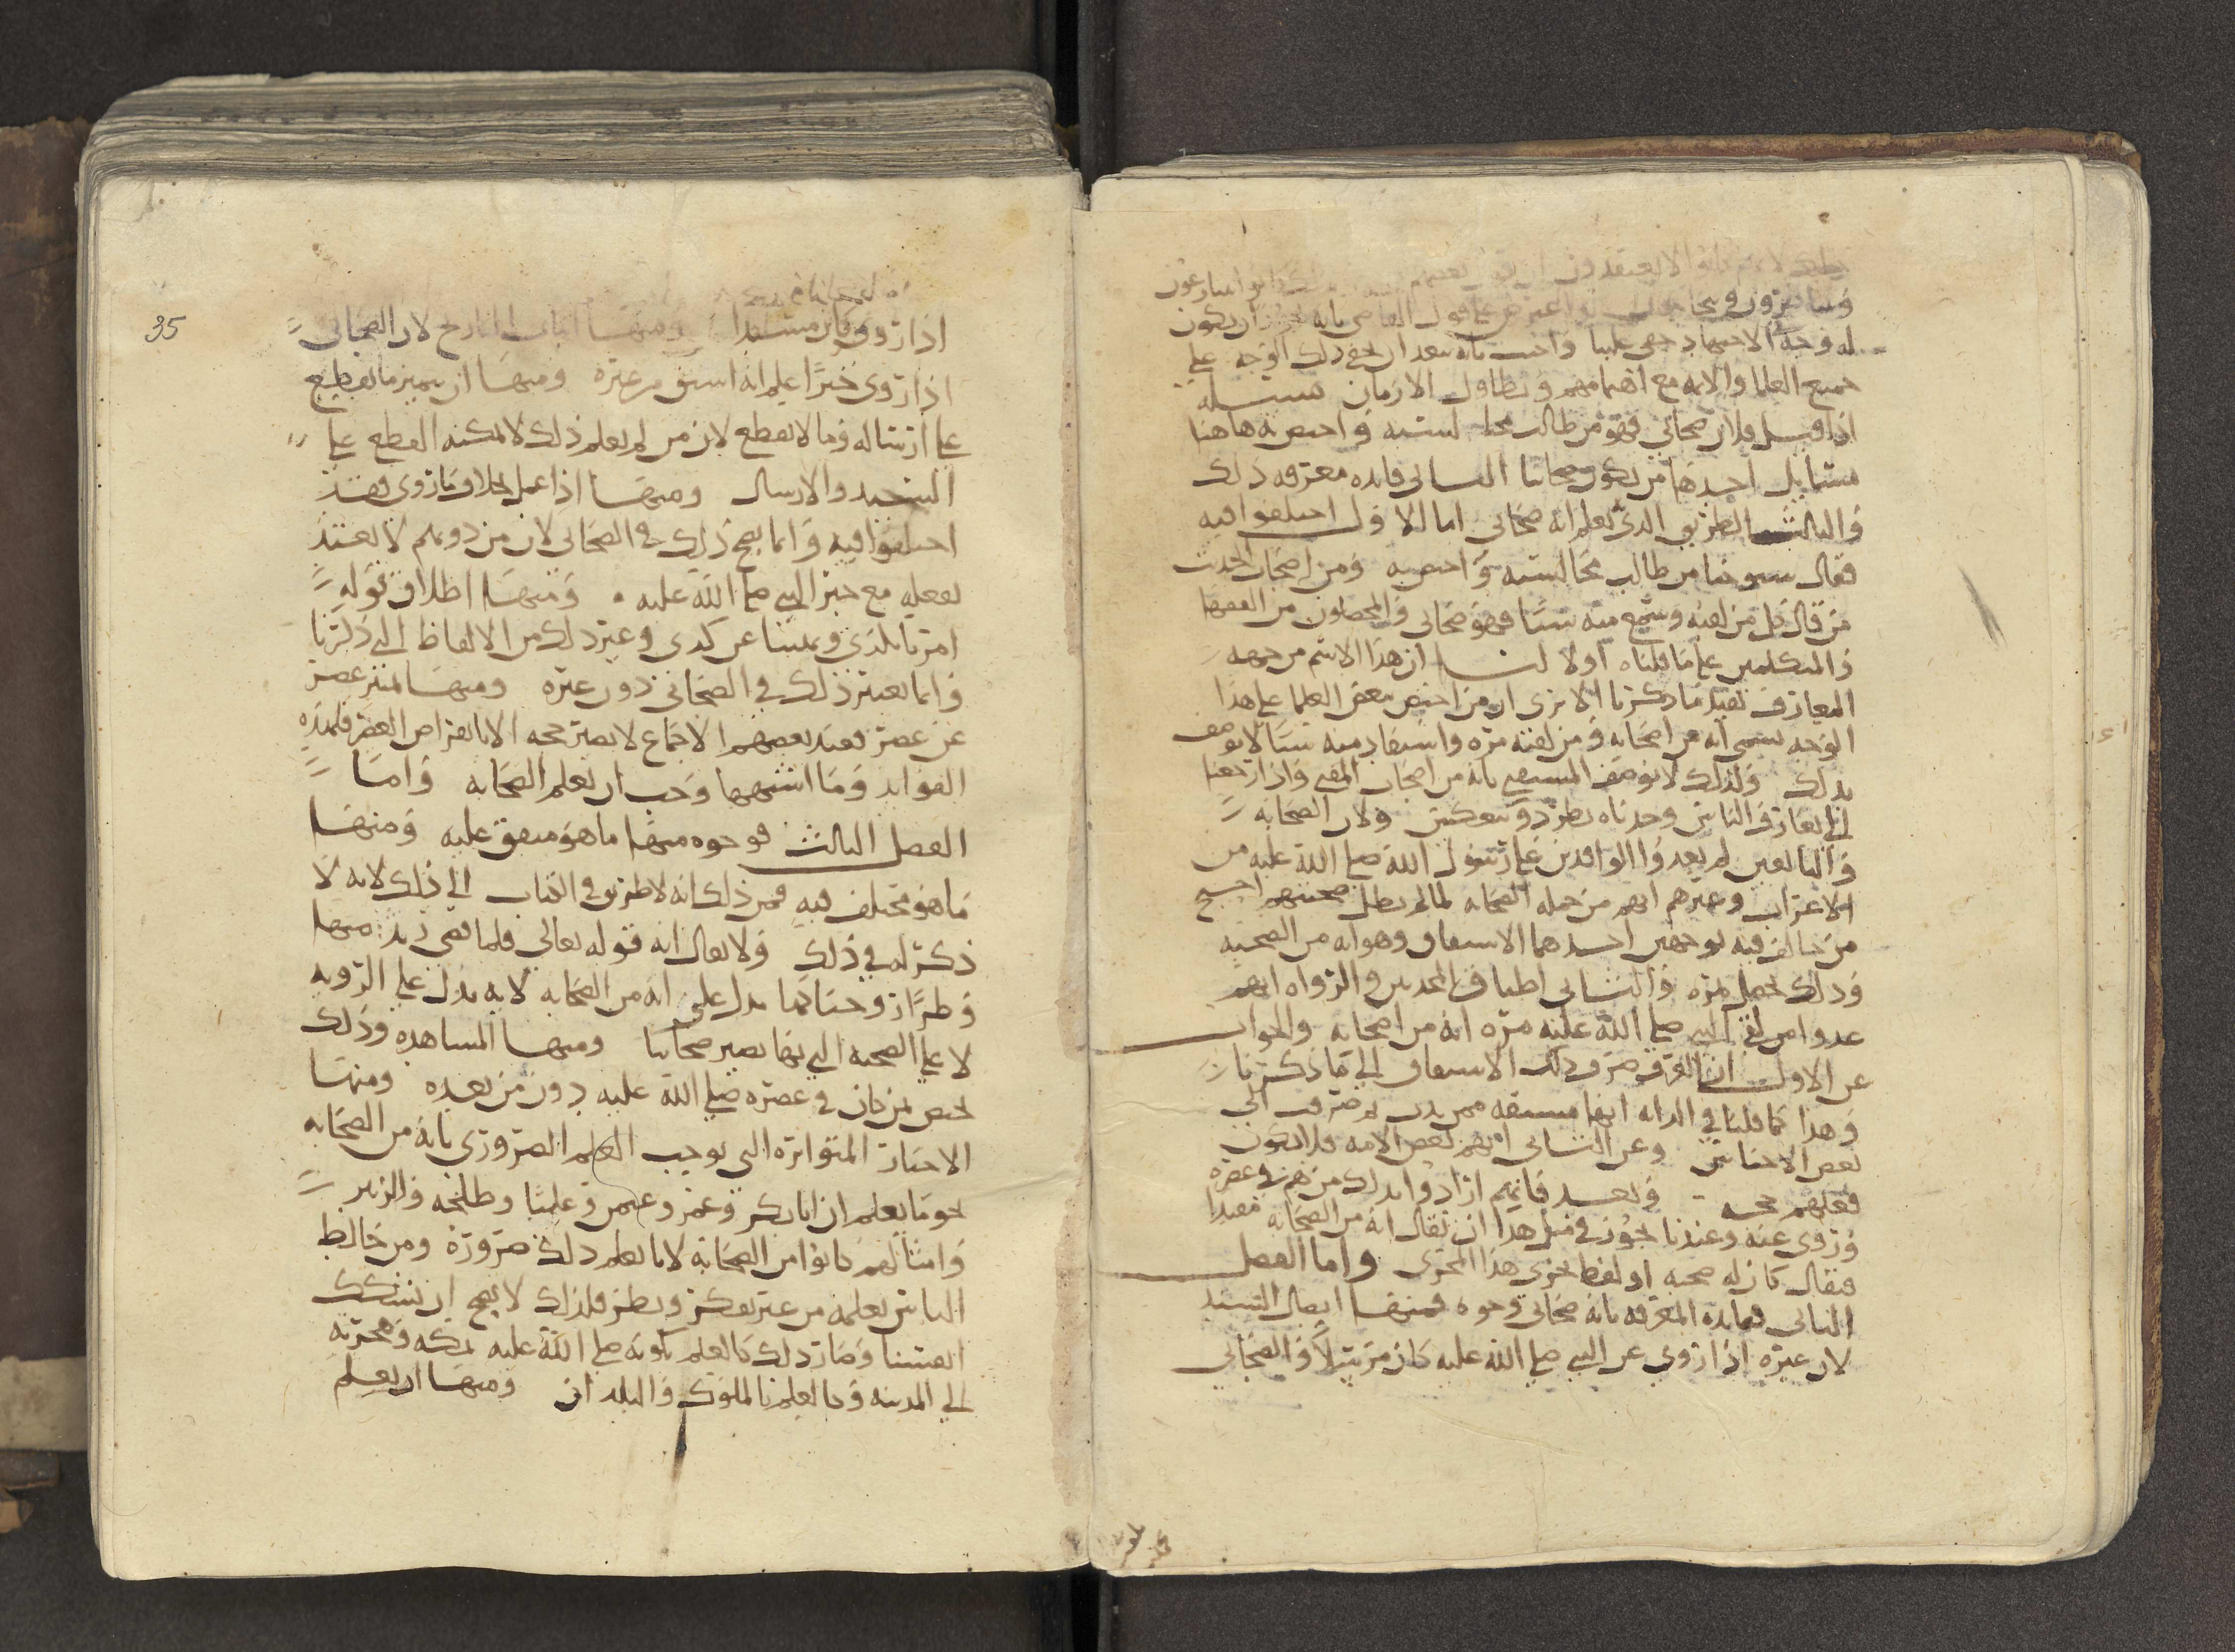 جميع العلما والامه مع اهتمامهم وتطاول الازمان مسله
اذا قيل فلان صحابي فهو من طالت مجالسته واختص به هاهنا
مسايل احدها من يكون صحابيا الثاني فايده معرفه ذلك
والثالث الطريق الذي يعلم انه صحابي اما الاول اختلفوا فيه
فقال شيوخنا من طالت مجالسته واختص به ومن اصحاب الحديث
من قال كل من لقيه وسمع منه شيا فهو صحابي والمحصلون من الفقها
والمتكلمين على ما قلناه اولا لنا ان هذا الاسم من جهه
التعارف يفيد ما ذكرنا الا ترى ان من اختص ببعض العلما على هذا
الوجه يسمى انه من اصحابه ومن لقيه مره واستفاد منه شيا لا يوصف
بذلك ولذلك لا يوصف المستفتي بانه من اصحاب المفتي واذا رجعنا
الى تعارف الناس وجدناه يطرد وينعكس ولان الصحابه
والتابعين لم يعدوا الوافدين على رسول الله صلى الله عليه من
الاعراب وغيرهم انهم من جمله الصحابه لما لم تطل صحبتهم احتج
من خالف فيه بوجهين احدهما الاشتقاق وهو انه من الصحبه
وذلك يحصل بمره والثاني اطباق المحدثين والرواه انهم
عدوا من لقي النبي صلى الله عليه مره انه من اصحابه والجواب
عن الاول ان العرف صرف ذلك الاشتقاق الى ما ذكرنا
وهذا كما قلنا في الدابه انها مشتقه ممن يدب ثم صرفت الى
بعض الاجناس وعن الثاني انهم بعض الامه فلا يكون
فعلهم حجه وبعد فانهم ارادوا بذلك من هم في عصره
وروى عنه وعندنا يجوز في مثل هذا ان يقال انه من الصحابه مقيدا
فيقال كان له صحبه او لفظ يجري هذا المجرى واما الفصل
الثاني ففايده المعرفه بانه صحابي وجوه فمنها ايصال السند
لان غيره اذا روى عن النبي صلى الله عليه كان مرسلا والصحابي
35
اذا روى كان مسندا ومنها اثبات التاريخ لان الصحابي
اذا روى خبرا علم انه اسبق من غيره ومنها ان يميز ما يقطع
على ارساله وما لا يقطع لان من لم يعلم ذلك لا يمكنه القطع على
السند والارسال ومنها اذا عمل بخلاف ما روى فقد
اختلفوا فيه وانما يصح ذلك في الصحابي لان من دونهم لا يعتد
بفعله مع خبر النبي صلى الله عليه ومنها اطلاق قوله
امرنا بكذى ونهينا عن كذى وغير ذلك من الالفاظ التي ذكرنا
وانما يعتبر ذلك في الصحابي دون غيره ومنها تميز عصر
عن عصر فعند بعضهم الاجماع لا يصير حجه الا بانقراض العصر فلهذه
الفوايد وما اشبهها وجب ان يعلم الصحابه واما
الفصل الثالث فوجوه منها ما هو متفق عليه ومنها
ما هو مختلف فيه فمن ذلك انه لا طريق في الكتاب الى ذلك لانه لا
ذكر له في ذلك ولا يقال انه قوله تعالى فلما قضى زيد منها
وطرا زوجناكها يدل على انه من الصحابه لانه يدل على الرويه
لا على الصحبه التي بها يصير صحابيا ومنها المشاهده وذلك
يختص بمن كان في عصره صلى الله عليه دون من بعده ومنها
الاخبار المتواتره التي توجب العلم الضروري بانه من الصحابه
نحو ما يعلم ان ابا بكر وعمر وعثمن وعليا وطلحه والزبير
وامثالهم كانوا من الصحابه لانا نعلم ذلك ضروره ومن خالط
الناس يعلمه من غير تفكر ونظر فلذلك لا يصح ان نشكك
انفسنا وصار ذلك كالعلم بكونه صلى الله عليه بمكه وهجرته
الى المدينه وكالعلم بالملوك والبلدان ومنها ان يعلم